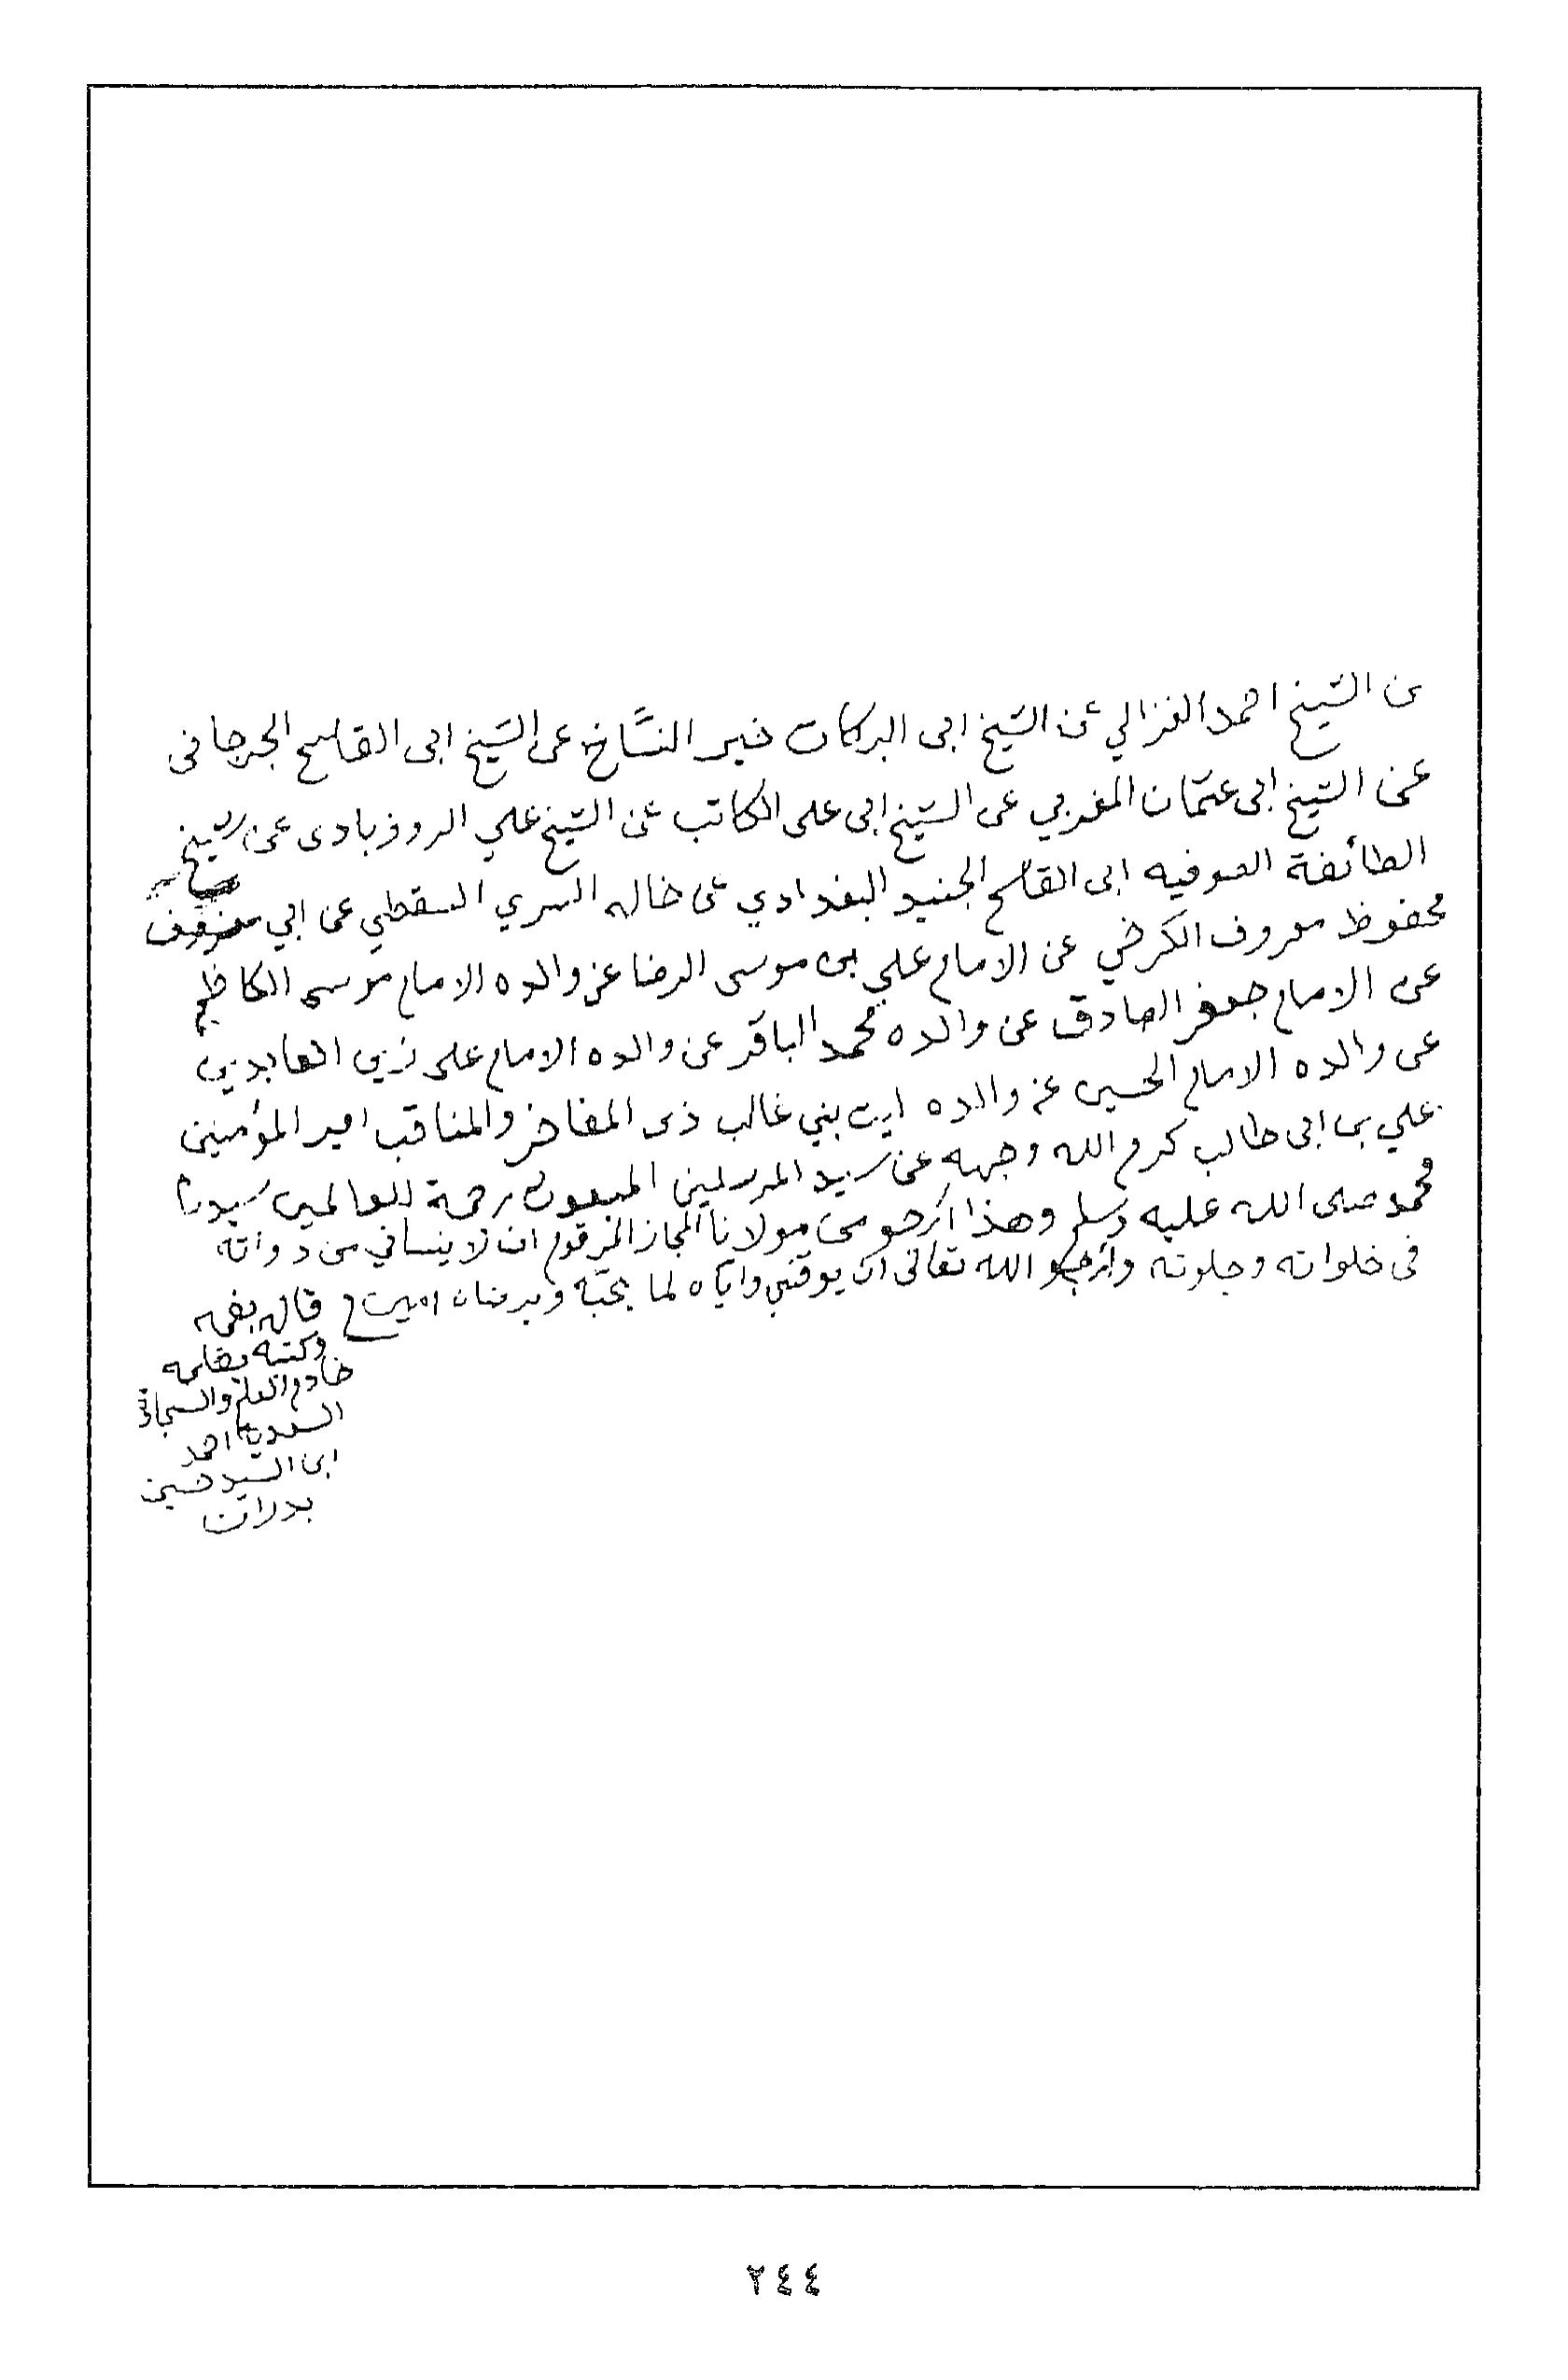 عن الشيخ احمد الغزالي عن الشيخ ابى البركات خير النسَّاخ عن الشيخ ابى القاسم الجرجانى
عن الشيخ ابى عثمان المغربي عن الشيخ ابى على الكاتب عن الشيخ علي الروذبادى عن شيخ
الطائفة الصوفيه ابى القاسم الجنيد البغدادي عن خاله السري السقطي عن ابي
محفوظ معروف الكرخي عن الامام علي بن موسى الرضا عن والده الامام موسى الكاظم
عن الامام جعفر الصادق عن والده محمد الباقر عن والده الامام على زين العابدين
عن والده الامام الحسين عن والده ليث بني غالب ذى المفاخر والمناقب امير المؤمنين
علي بن ابى طالب كرم الله وجهه عن سيد المرسلين المبعوث رحمة للعالمين سيدنا
محمد صلى الله عليه وسلم وهذا ارجو من مولانا المجاز المرقوم ان لا ينساني من دعواته
فى خلواته وجلوته وارجو الله تعالى ان يوفقني واياه لما يحبّه ويرضاه امين م قاله بفمه
وكتبه بقلمه
خادم العلم والسجادة
السعدية احمد
ابن السيد حسين
بدران
٢٤٤